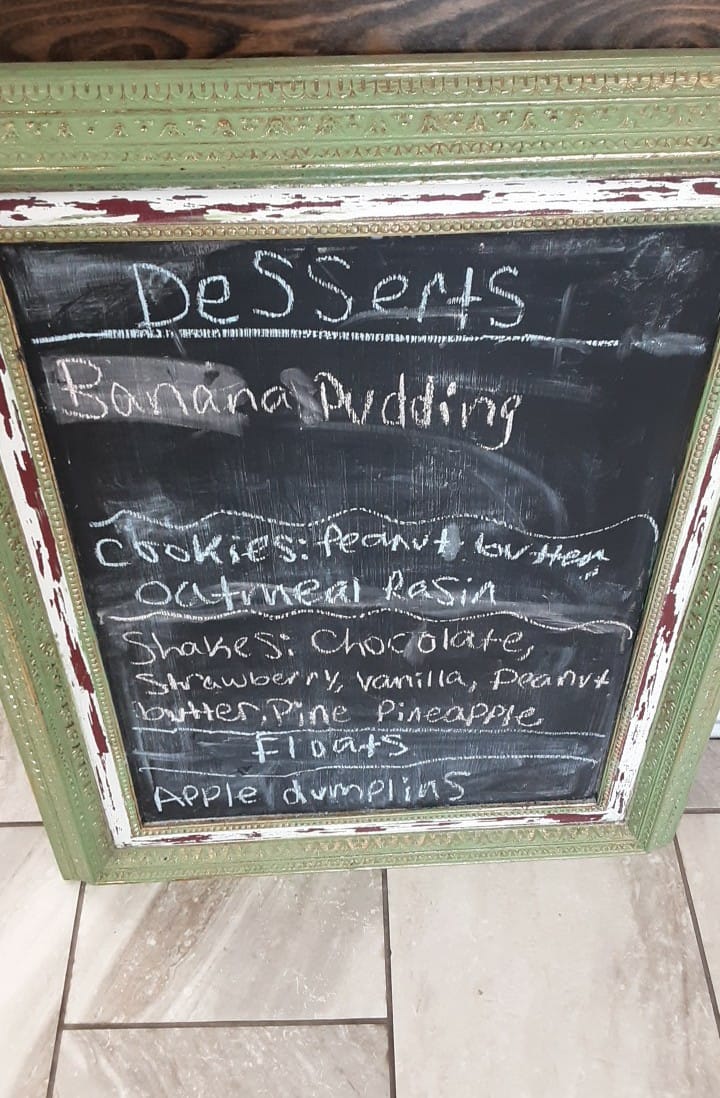 Desserts
Banana Pudding
Cookies: Peanut butter
oatmeal Rasin
Shakes: Chocolate,
Strawberry, Vanilla, Peanut
butter, Pine Pineapple
Floats
Apple dumplins